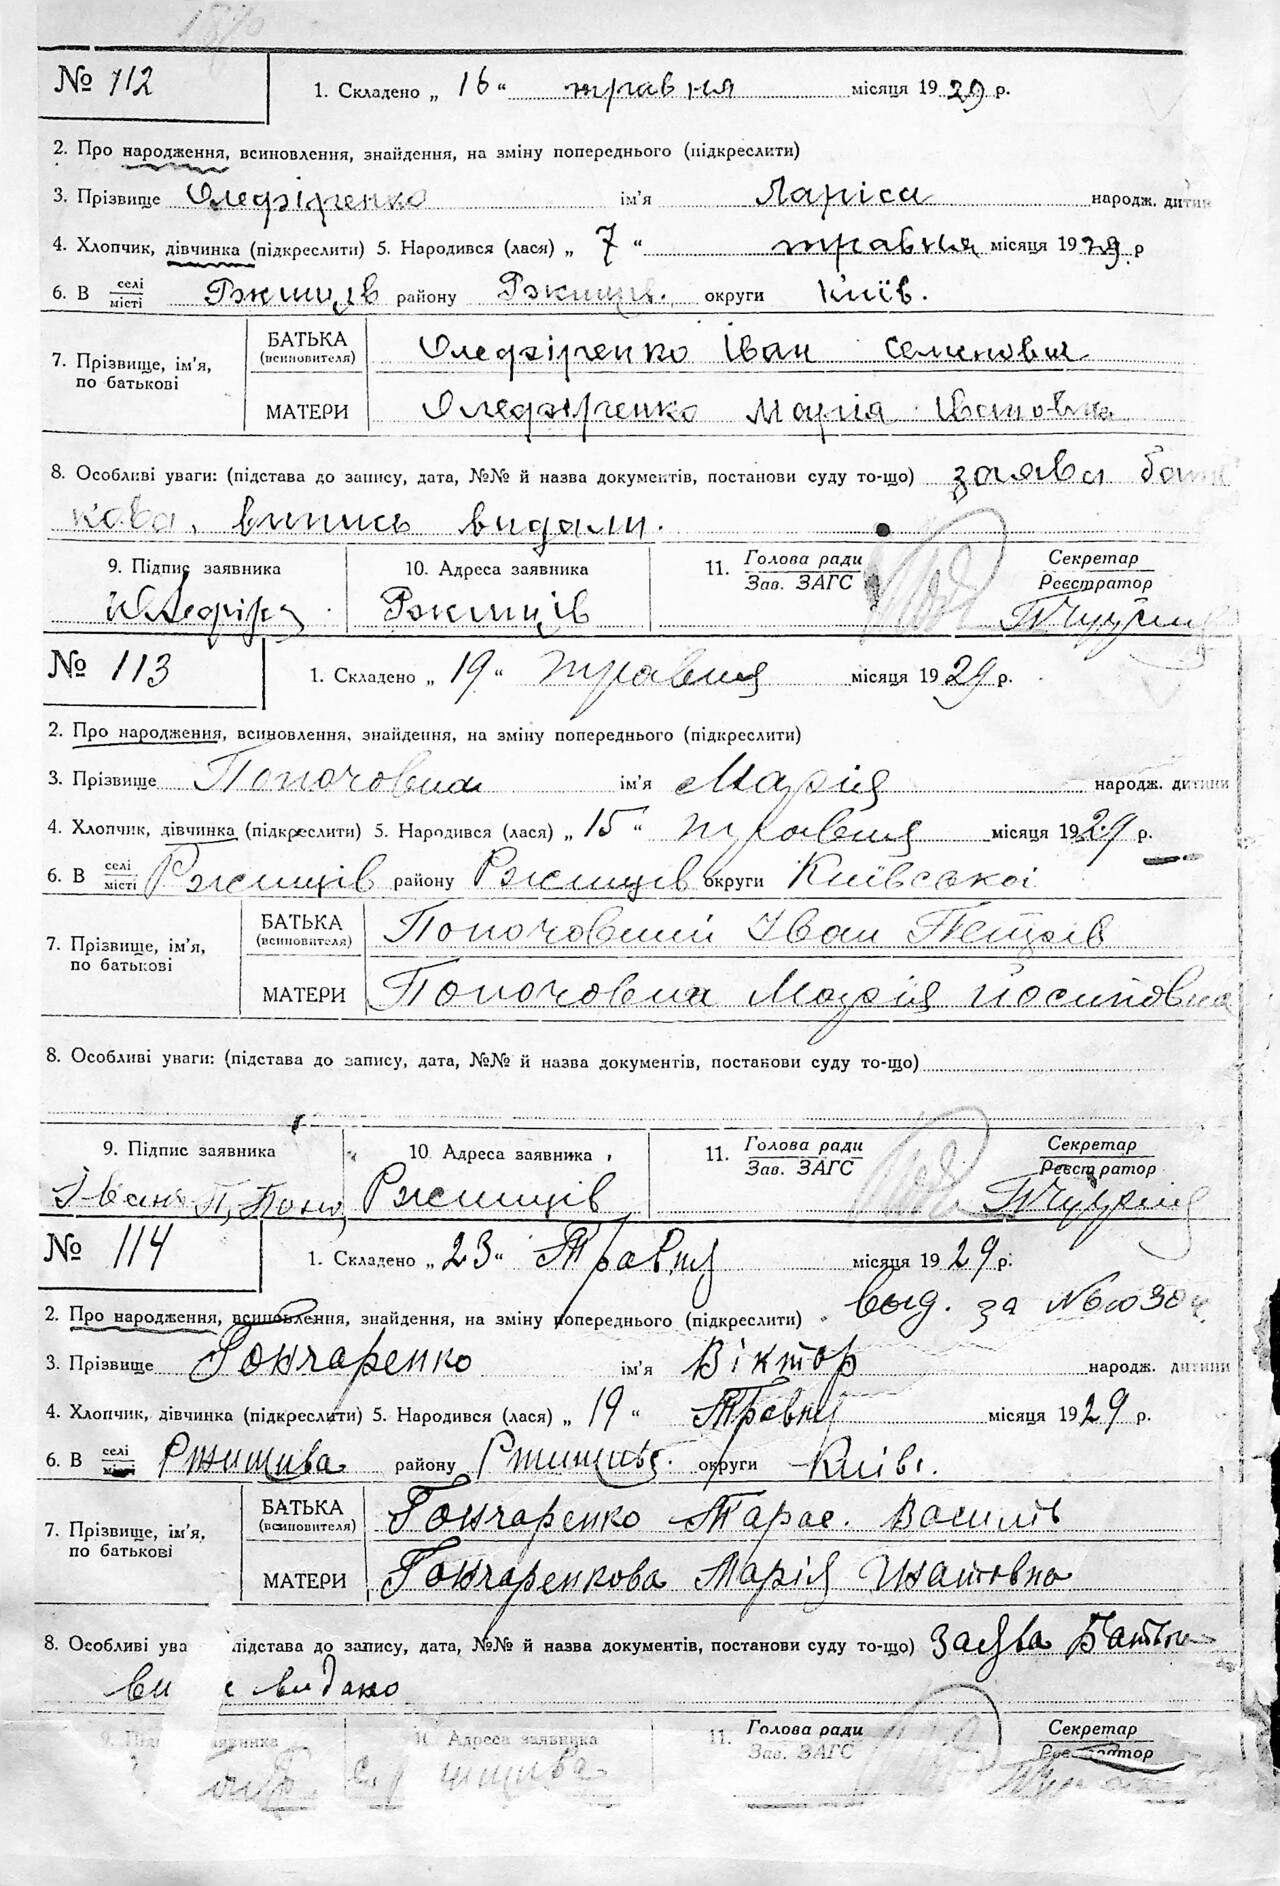 № 112 1. Складено „ 16 “ травня місяця 1929 р.
2. Про народження, всиновлення, знайдення, на зміну попереднього (підкреслити)
3. Прізвище Олефіренко ім'я Лариса народж. дитини
4. Хлопчик, дівчинка (підкреслити) 5. Народився (лася) „ 7 “ травня місяця 1929 р
6. В селі/місті Ржищів району Ржищів. округи Київ.
7. Прізвище, ім'я, по батькові
БАТЬКА (всиновителя) Олефіренко Іван Семенович
МАТЕРИ Олефіренко Марія Івановна
8. Особливі уваги: (підстава до запису, дата, №№ й назва документів, постанови суду то-що) заява бать
кова, випись видали.
9. Підпис заявника 10. Адреса заявника 11. Голова ради/Зав. ЗАГС Секретар/Реєстратор
Ржищів
№ 113 1. Складено „ 19 “ травня місяця 1929 р.
2. Про народження, всиновлення, знайдення, на зміну попереднього (підкреслити)
3. Прізвище Попочовна ім'я Марія народж. дитини
4. Хлопчик, дівчинка (підкреслити) 5. Народився (лася) „ 15 “ травня місяця 1929 р.
6. В селі/місті Ржищів району Ржищів округи Київської
7. Прізвище, ім'я, по батькові
БАТЬКА (всиновителя) Попочовний Іван Петрів
МАТЕРИ Попочовна Марія Йосиповна
8. Особливі уваги: (підстава до запису, дата, №№ й назва документів, постанови суду то-що)
9. Підпис заявника 10. Адреса заявника 11. Голова ради/Зав. ЗАГС Секретар/Реєстратор
Іван П. Попо Ржищів
№ 114 1. Складено „ 23 “ Травня місяця 1929 р.
выд. за №
2. Про народження, всиновлення, знайдення, на зміну попереднього (підкреслити)
3. Прізвище Гончаренко ім'я Віктор народж. дитини
4. Хлопчик, дівчинка (підкреслити) 5. Народився (лася) „ 19 “ Травня місяця 1929 р.
6. В селі/місті Ржищива району округи Київ.
7. Прізвище, ім'я, по батькові
БАТЬКА (всиновителя) Гончаренко Тарас. Василів
МАТЕРИ Гончаренкова Марія Игнатовна
8. Особливі ува підстава до запису, дата, №№ й назва документів, постанови суду то-що) Заява Батьк
видано
9. Підпис заявника 10. Адреса заявника 11. Голова ради/Зав. ЗАГС Секретар/Реєстратор